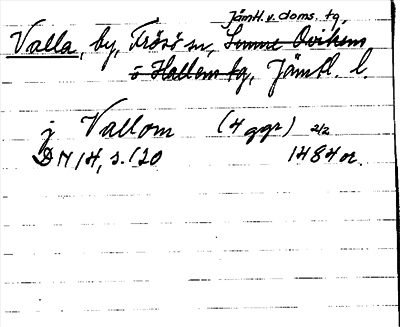 Jämtl. v. doms. tg,
Valla, by, Frösö sn, Sunne Ovikens
o Hallens tg, Jämtl. l.
j Vallom (4 ggr) 2/2
DN 14, s. 120 1484 or.